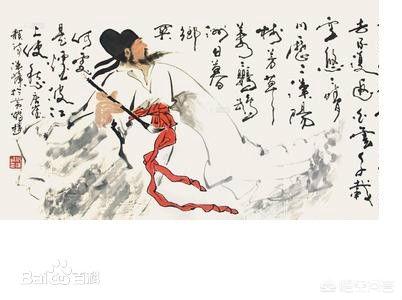 去不復返白雲千載
空悠悠晴
川歷歷漢陽
樹芳草
萋萋鸚鵡
洲日暮
鄉
何處
是煙波江
上使愁
Bai百科
悟空问答